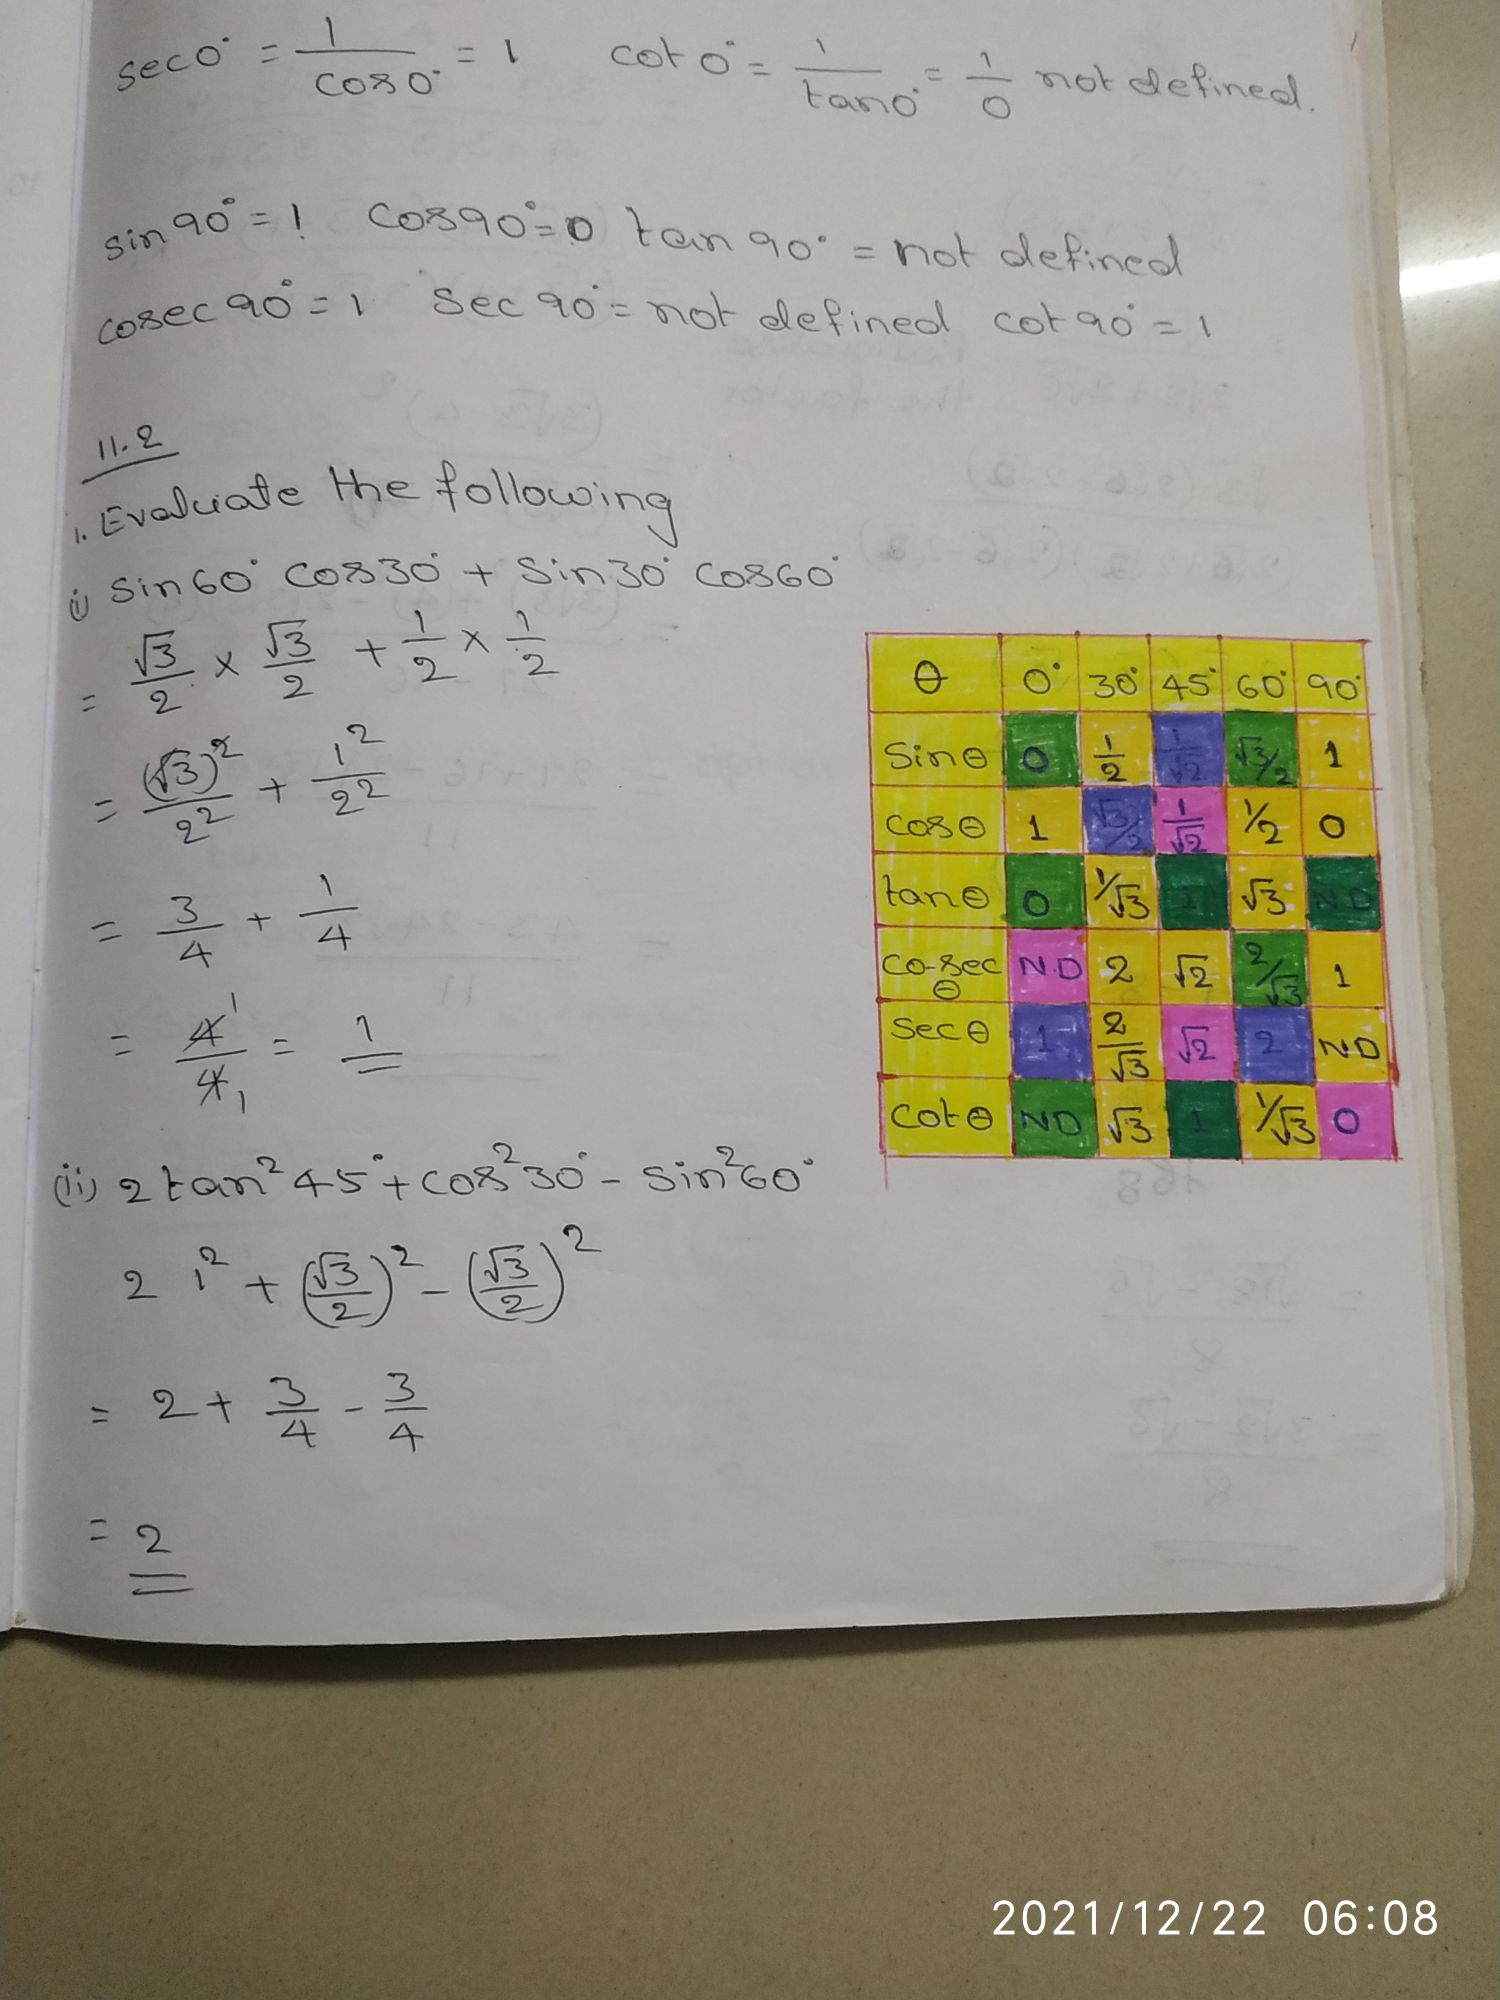 sec0° = 1/cos0° = 1 cot0° = 1/tan0° = 1/0 not defined.
sin90° = 1 cos90° = 0 tan90° = not defined
cosec90° = 1 sec90° = not defined cot90° = 1
11.2
1. Evaluate the following
(i) sin60° cos30° + sin30° cos60°
= √3/2 × √3/2 + 1/2 × 1/2
= (√3)²/2² + 1²/2²
= 3/4 + 1/4
= 4/4 = 1
(ii) 2tan²45° + cos²30° - sin²60°
2 1² + (√3/2)² - (√3/2)²
= 2 + 3/4 - 3/4
= 2
θ 0° 30° 45° 60° 90°
sinθ 0 1/2 1/√2 √3/2 1
cosθ 1 √3/2 1/√2 1/2 0
tanθ 0 1/√3 1 √3 ND
co-sec θ N.D 2 √2 2/√3 1
secθ 1 2/√3 √2 2 ND
cotθ ND √3 1 1/√3 0
2021/12/22 06:08